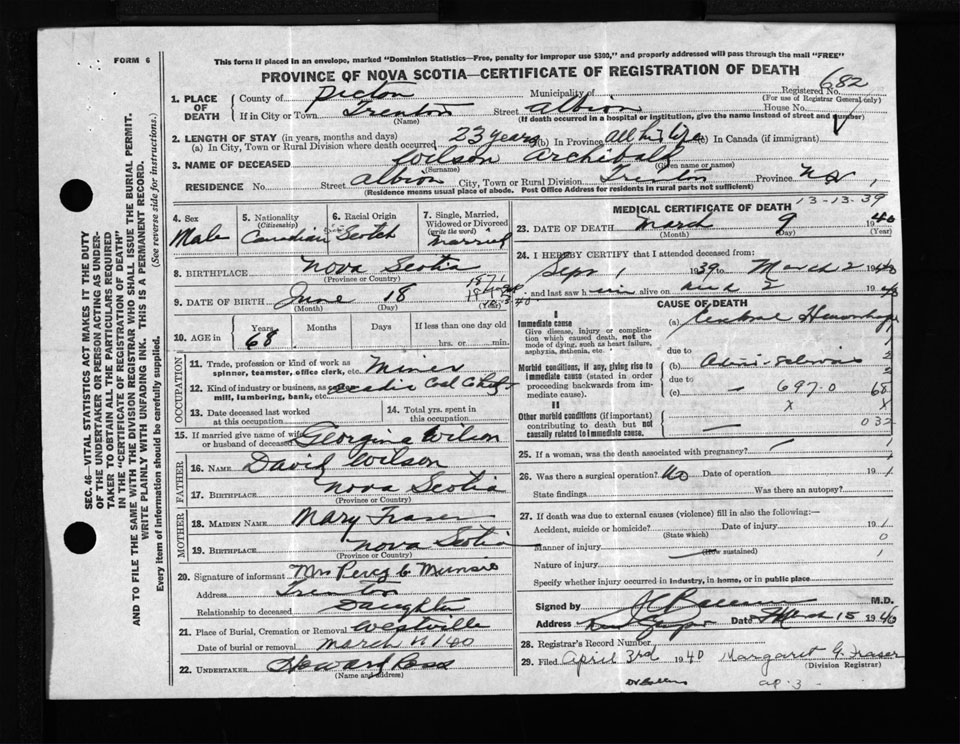 FORM 6
This form if placed in an envelope, marked "Dominion Statistics—Free, penalty for improper use $300," and properly addressed will pass through the mail "FREE"
PROVINCE OF NOVA SCOTIA—CERTIFICATE OF REGISTRATION OF DEATH
682
1. PLACE OF DEATH County of Pictou Municipality of Registered No.
(For use of Registrar General only)
If in City or Town Trenton Street Albion House No.
(Name) (If death occurred in a hospital or institution, give the name instead of street and number)
2. LENGTH OF STAY (in years, months and days)
(a) In City, Town or Rural Division where death occurred 23 years (b) In Province all his life (c) In Canada (if immigrant)
3. NAME OF DECEASED Wilson Archibald
(Surname) (Given name or names)
RESIDENCE No. Street Albion City, Town or Rural Division Trenton Province N.S.
(Residence means usual place of abode. Post Office Address for residents in rural parts not sufficient)
4. Sex Male
5. Nationality (Citizenship) Canadian
6. Racial Origin Scotch
7. Single, Married, Widowed or Divorced (write the word) Married
8. BIRTHPLACE Nova Scotia
(Province or Country)
9. DATE OF BIRTH June 18
(Month) (Day) (Year)
10. AGE in Years 68 Months Days If less than one day old hrs. or min.
OCCUPATION
11. Trade, profession or kind of work as spinner, teamster, office clerk, etc. Miner
12. Kind of industry or business, as mill, lumbering, bank, etc. Acadia Coal Co
13. Date deceased last worked at this occupation
14. Total yrs. spent in this occupation
15. If married give name of wife or husband of deceased Georgina Wilson
FATHER
16. NAME David Wilson
17. BIRTHPLACE Nova Scotia
(Province or Country)
MOTHER
18. MAIDEN NAME Mary Fraser
19. BIRTHPLACE Nova Scotia
(Province or Country)
20. Signature of informant Mrs Percy C Munsie
Address Trenton
Relationship to deceased Daughter
21. Place of Burial, Cremation or Removal Westville
Date of burial or removal March 11/40
22. UNDERTAKER Howard Ross
(Name and address)
13-13-39
MEDICAL CERTIFICATE OF DEATH
23. DATE OF DEATH March 9 1940
(Month) (Day) (Year)
24. I HEREBY CERTIFY that I attended deceased from:
Sept 1 1939 to March 2 1940
and last saw him alive on 2 1940
CAUSE OF DEATH
I
Immediate cause
Give disease, injury or complication which caused death, not the mode of dying, such as heart failure, asphyxia, asthenia, etc.
(a) Cerebral Hemorrhage
due to
Morbid conditions, if any, giving rise to immediate cause (stated in order proceeding backwards from immediate cause).
(b)
due to
(c) 697.0 68
II
x x
Other morbid conditions (if important) contributing to death but not causally related to immediate cause.
032
25. If a woman, was the death associated with pregnancy?
26. Was there a surgical operation? No Date of operation 19
State findings Was there an autopsy?
27. If death was due to external causes (violence) fill in also the following:—
Accident, suicide or homicide? Date of injury 19
(State which)
Manner of injury
(How sustained)
Nature of injury
Specify whether injury occurred in industry, in home, or in public place
Signed by M.D.
Address Date March 15 1940
28. Registrar's Record Number
29. Filed April 3rd 1940 Margaret G. Fraser
(Division Registrar)
ap. 3
SEC. 46—VITAL STATISTICS ACT MAKES IT THE DUTY
OF THE UNDERTAKER OR PERSON ACTING AS UNDERTAKER TO OBTAIN ALL THE PARTICULARS REQUIRED
IN THE "CERTIFICATE OF REGISTRATION OF DEATH"
AND TO FILE THE SAME WITH THE DIVISION REGISTRAR WHO SHALL ISSUE THE BURIAL PERMIT.
WRITE PLAINLY WITH UNFADING INK. THIS IS A PERMANENT RECORD.
Every item of information should be carefully supplied. (See reverse side for instructions.)